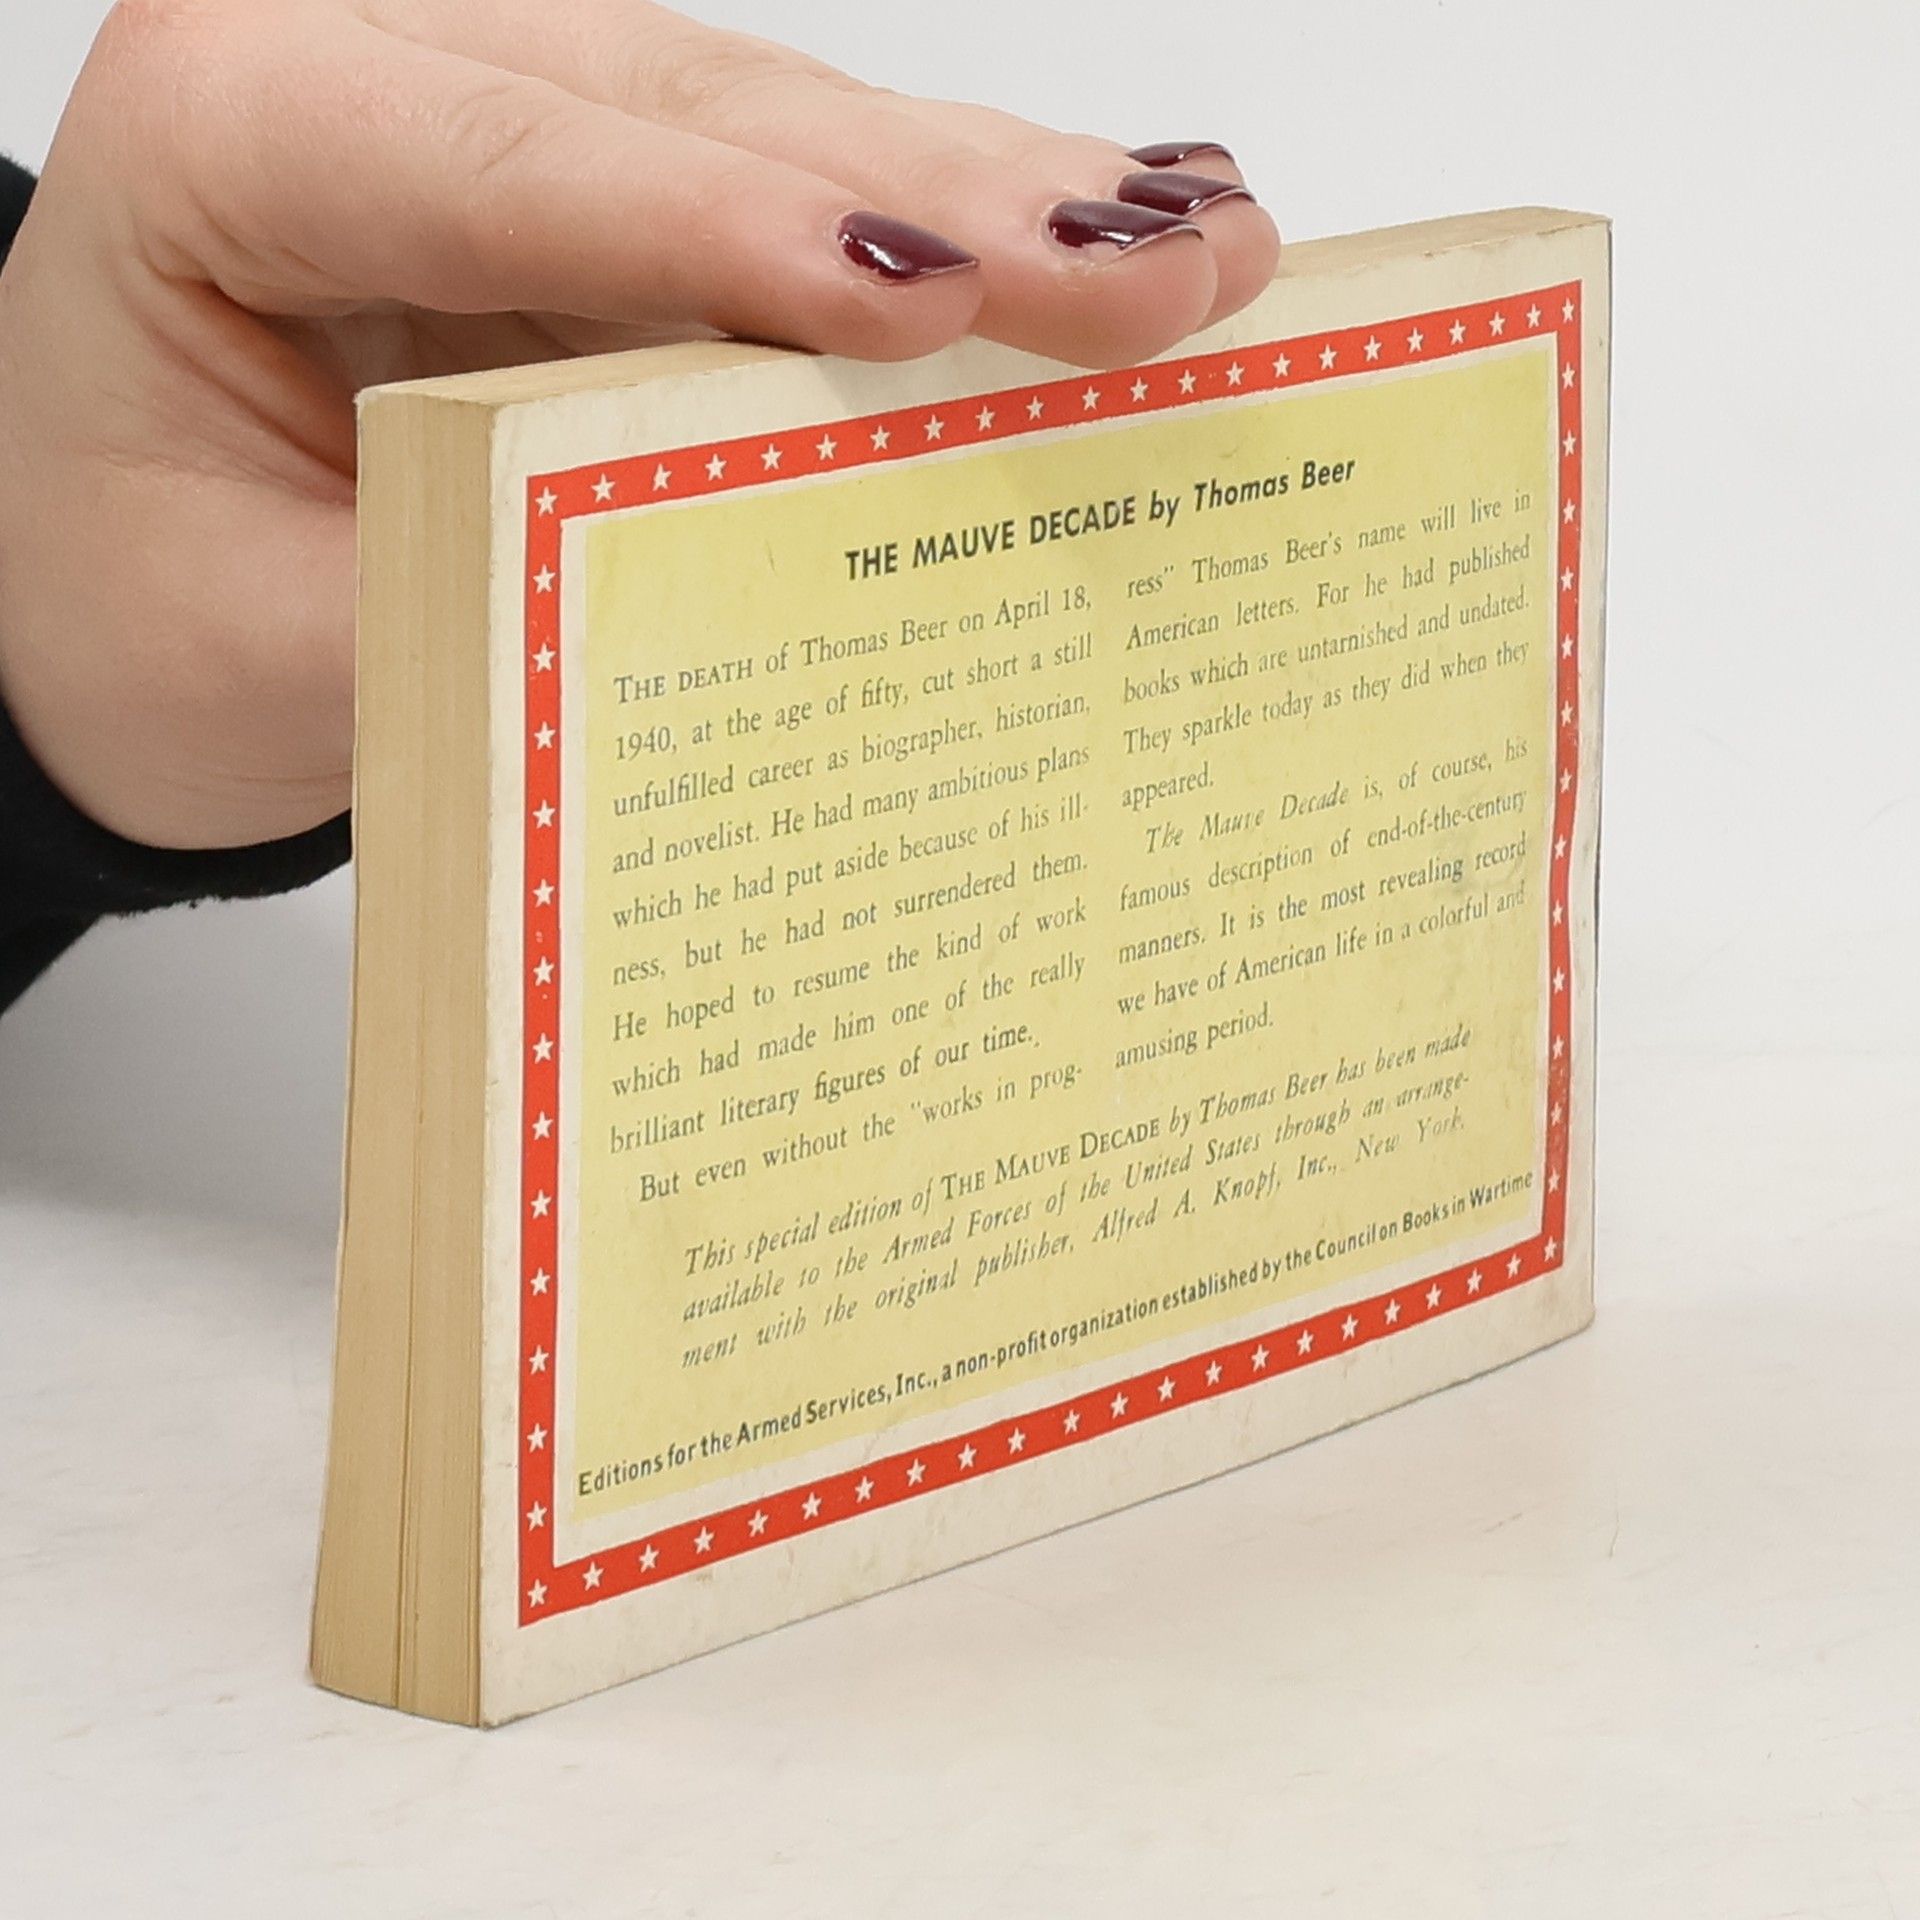 THE MAUVE DECADE by Thomas Beer
THE DEATH of Thomas Beer on April 18,
1940, at the age of fifty, cut short a still
unfulfilled career as biographer, historian,
and novelist. He had many ambitious plans
which he had put aside because of his ill-
ness, but he had not surrendered them.
He hoped to resume the kind of work
which had made him one of the really
brilliant literary figures of our time.
But even without the "works in prog-
ress" Thomas Beer's name will live in
American letters. For he had published
books which are untarnished and undated.
They sparkle today as they did when they
appeared.
The Mauve Decade is, of course, his
famous description of end-of-the-century
manners. It is the most revealing record
we have of American life in a colorful and
amusing period.
This special edition of THE MAUVE DECADE by Thomas Beer has been made
available to the Armed Forces of the United States through an arrange-
ment with the original publisher, Alfred A. Knopf, Inc., New York.
Editions for the Armed Services, Inc., a non-profit organization established by the Council on Books in Wartime